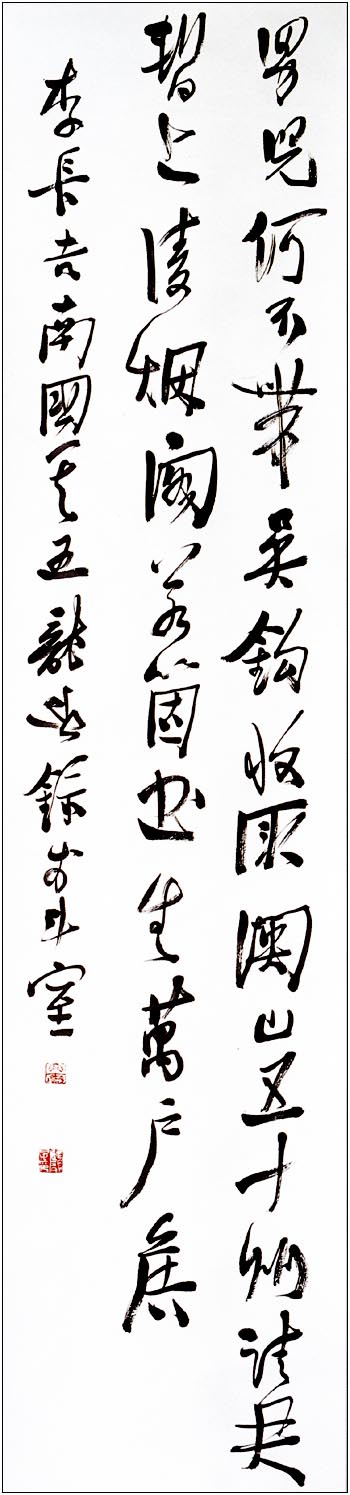 男兒何不帶吳鉤收取關山五十州請君
暫上凌烟閣若箇書生萬戶侯
李長吉南國其五錄於斗室